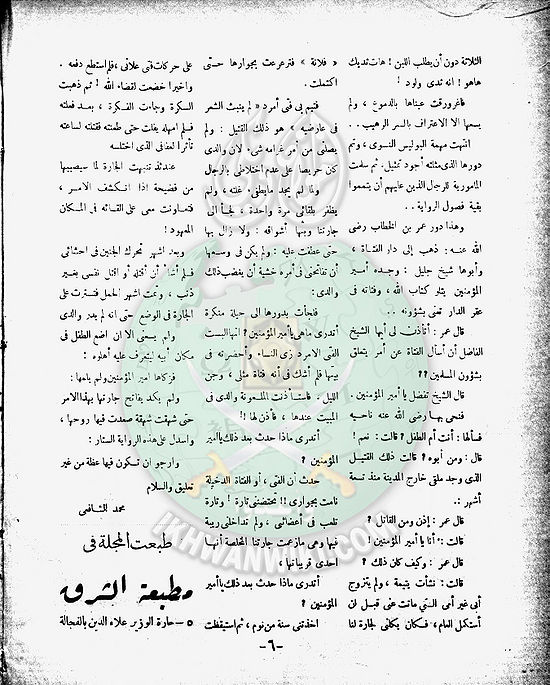 الثلاثة دون أن يطلب اللبن ! هات ثديك
هاهو ! انه ثدى ولود !
فاغرورقت عيناها بالدموع ، ولم
يسعها الا الاعتراف بالسر الرهيب . .
انتهت مهمة البوليس النسوى ، وتم
دورها الذى مثلته أجود تمثيل . ثم سلمت
المأمورية للرجل الذين عليهم أن يتمموا
بقية فصول الرواية . .
وهذا دور عمر بن الخطاب رضى
الله عنه : ذهب إلى دار الفتاة ،
وأبوها شيخ جليل : وجده أمير
المؤمنين يتلو كتاب الله ، وفتاته فى
عقر الدار تعنى بشؤونه . .
قال عمر : أتأذن لى أيها الشيخ
الفاضل أن أسأل الفتاة عن أمر يتعلق
بشؤون المسلمين ؟؟
قال الشيخ تفضل يا أمير المؤمنين .
فنحى بها رضى الله عنه ناحيه
فسألها : أنت أم الطفل ؟ قالت : نعم !
قال : ومن أبوه ؟ قالت ذلك القتيل
الذى وجد ملقى خارج المدينة منذ تسعة
أشهر .:
قال عمر : إذن ومن القاتل ؟
قالت : أنا يا أمير المؤمنين !
قال عمر : وكيف كان ذلك ؟
قالت : نشأت يتيمة ، ولم يتزوج
أبى غير أمى التى ماتت عنى قبل ان
أستكمل العام ، فكان يكلنى لجارة لنا
« فلانة » فترعرعت بجوارها حتى
اكتملت .
فتيم بى فى أمرد « لم ينبت الشعر
فى عارضيه » هو ذلك القتيل : ولم
يصلنى من أمر غرامه شىء لان والدى
كان حريصا على عدم اختلاطى بالرجال
ولما لم يجد مايطفىء غلته ، ولم
يظفر بلقائى مرة واحدة ، لجأ الى
جارتنا وبثها أشواقه : ولا زال بها
حتى عطفت عليه : ولم يكن فى وسعها
أن تفاتحنى فى أمره خشية أن يغضب ذلك
والدى :
فلجأت بدورها الى حيلة منكرة
أتدرى ماهى يا أمير المؤمنين ؟ انها ألبست
الفتى الامرد زى النساء وأحضرته فى
بيتها فلم أشك فى أنه فتاة مثلى ، وجن
الليل . فاستأذنت الملعونة والدى فى
المبيت عندها ، فأذن لها !!
أتدرى ماذا حدث بعد ذلك يا أمير
المؤمنين ؟
حدث أن الفتى ، أو الفتاة الدخيلة
نامت بجوارى !! تحتضنى تارة ! وتارة
تلعب فى أعضائى ، ولم تداخلنى ريبة
فيها وهى مازعمت جارتنا المخلصة أنها
احدى قريباتها ،
أتدرى ماذا حدث بعد ذلك يا أمير
المؤمنين ؟
اخذتنى سنة من نوم ، ثم استيقظت
على حركات فتى علانى ، فلم استطع دفعه .
واخيرا خضعت لقضاء الله ! ثم ذهبت
السكرة وجاءت الفكرة ، بعد فعلته
فلم امهله يفلت حتى طعنته فقتلته لساعته
ثأرا لعفافى الذى اختلسه
عندئذ تنبهت الجارة لما سيصيبها
من فضيحة إذا انكشف الامر ،
فتعاونت معى على القائه فى المكان
المعهود !
وبعد اشهر تحرك الجنين فى احشائى
فلم أشأ أن أقتله أو اقتل نفسى بغير
ذنب ، وتمت اشهر الحمل فتسترت على
الجارة فى الوضع حتى انه لم يدر والدى
ولم يسعنى الا ان اضع الطفل فى
مكان أبيه ليتعرف عليه أهلوه :
فزكاها امير المؤمنين ولم يلمها :
ولم يكد يفاتح جارتها بهذا الامر
حتى شهقت شهقة صعدت فيها روحها ،
واسدل على هذه الرواية الستار :
وارجو ان تكون فيها عظة من غير
تعليق والسلام
محمد الشافعى
طبعت المجلة فى
مطبعة الشرق
٥ – حارة الوزير علاء الدين بالفجالة
–٦–
IKHWANWIKI.COM